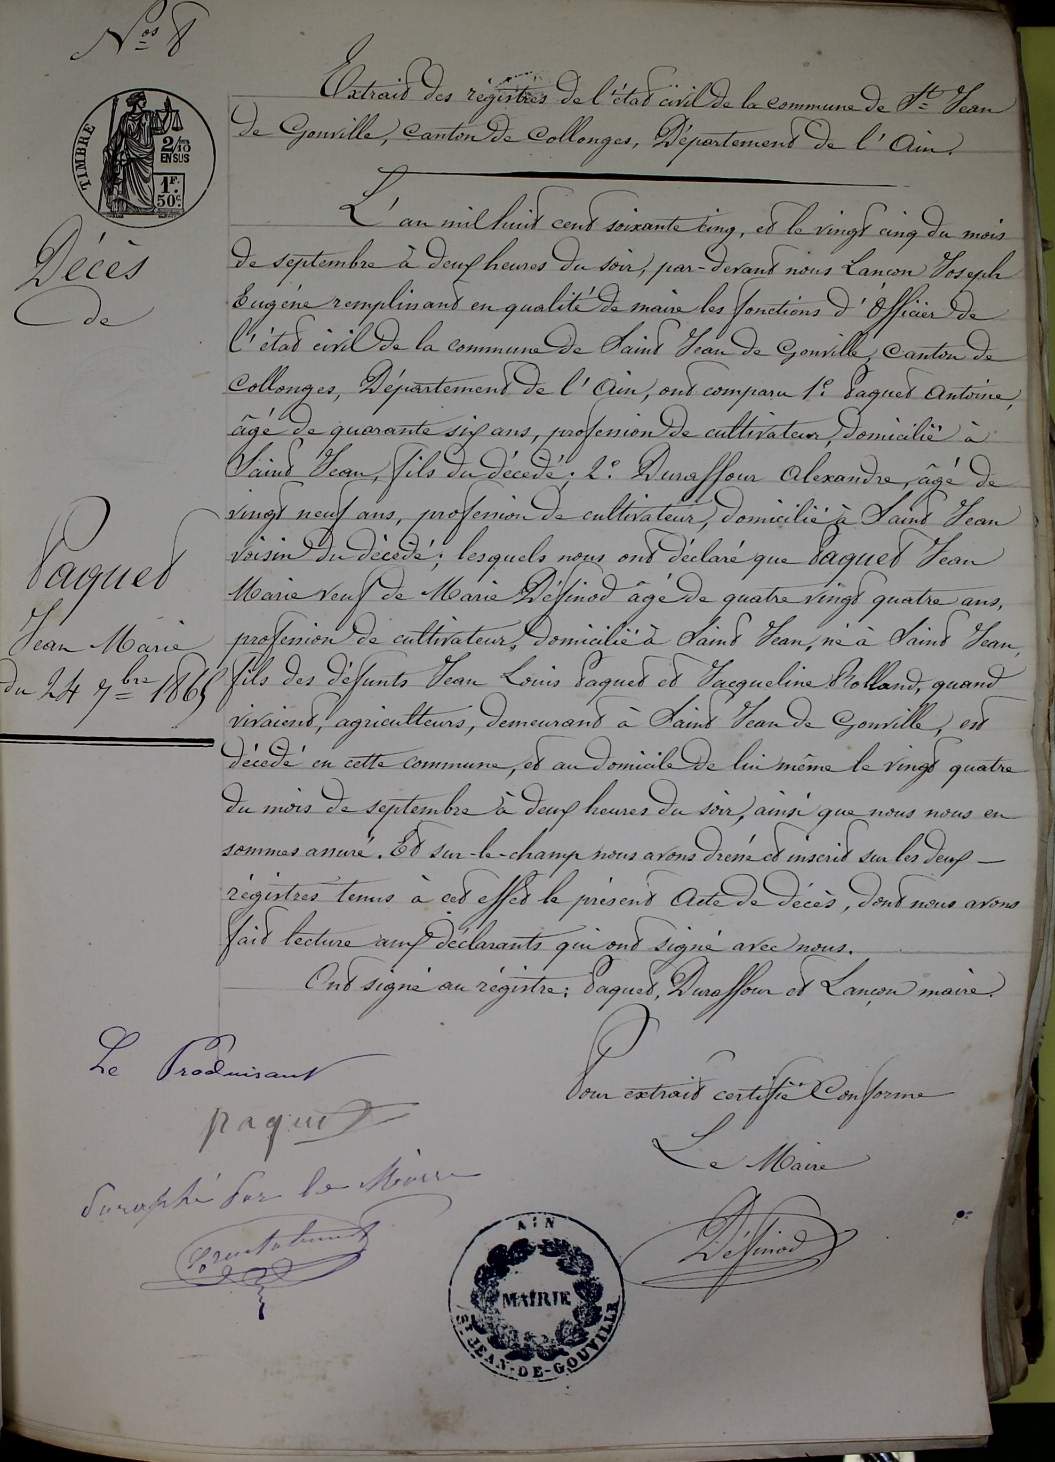 Nos 8
Extrait des régistres de l'état civil de la commune de St Jean
de Gonville, canton de Collonges, Département de l'Ain.
TIMBRE
2/10
EN SUS
1F.
50c.
Décès
de
Paquet
Jean Marie
du 24 7bre 1865
L'an mil huit cent soixante cinq, et le vingt cinq du mois
de septembre à deux heures du soir, par-devant nous Lançon Joseph
Eugéne remplissant en qualité de maire les fonctions d'Officier de
l'état civil de la commune de Saint Jean de Gonville, Canton de
Collonges, Département de l'Ain, ont comparu 1° Paquet Antoine,
âgé de quarante six ans, profession de cultivateur, domicilié à
Saint Jean, fils du décedé; 2° Duraffour Alexandre, âgé de
vingt neuf ans, profession de cultivateur, domicilié à Saint Jean
voisin du décedé; lesquels nous ont déclaré que Paquet Jean
Marie veuf de Marie Déffinod âgé de quatre vingt quatre ans,
profession de cultivateur, domicilié à Saint Jean, né à Saint Jean,
fils des défunts Jean Louis Paquet et Jacqueline Rolland, quand
vivaient, agriculteurs, demeurant à Saint Jean de Gonville, est
décédé en cette commune, et au domicile de lui même le vingt quatre
du mois de septembre à deux heures du soir, ainsi que nous nous en
sommes assuré. Et sur-le-champ nous avons dressé et inscrit sur les deux
régistres tenus à cet effet le présent Acte de décès, dont nous avons
fait lecture aux déclarants qui ont signé avec nous.
Ont signé au régistre: Paquet, Duraffour et Lançon maire.
Le Produisant
paquet
Paraphé Par le Maire
Pour extrait certifié Conforme
Le Maire
Déffinod
AIN
MAIRIE
ST JEAN-DE-GOUVILLE